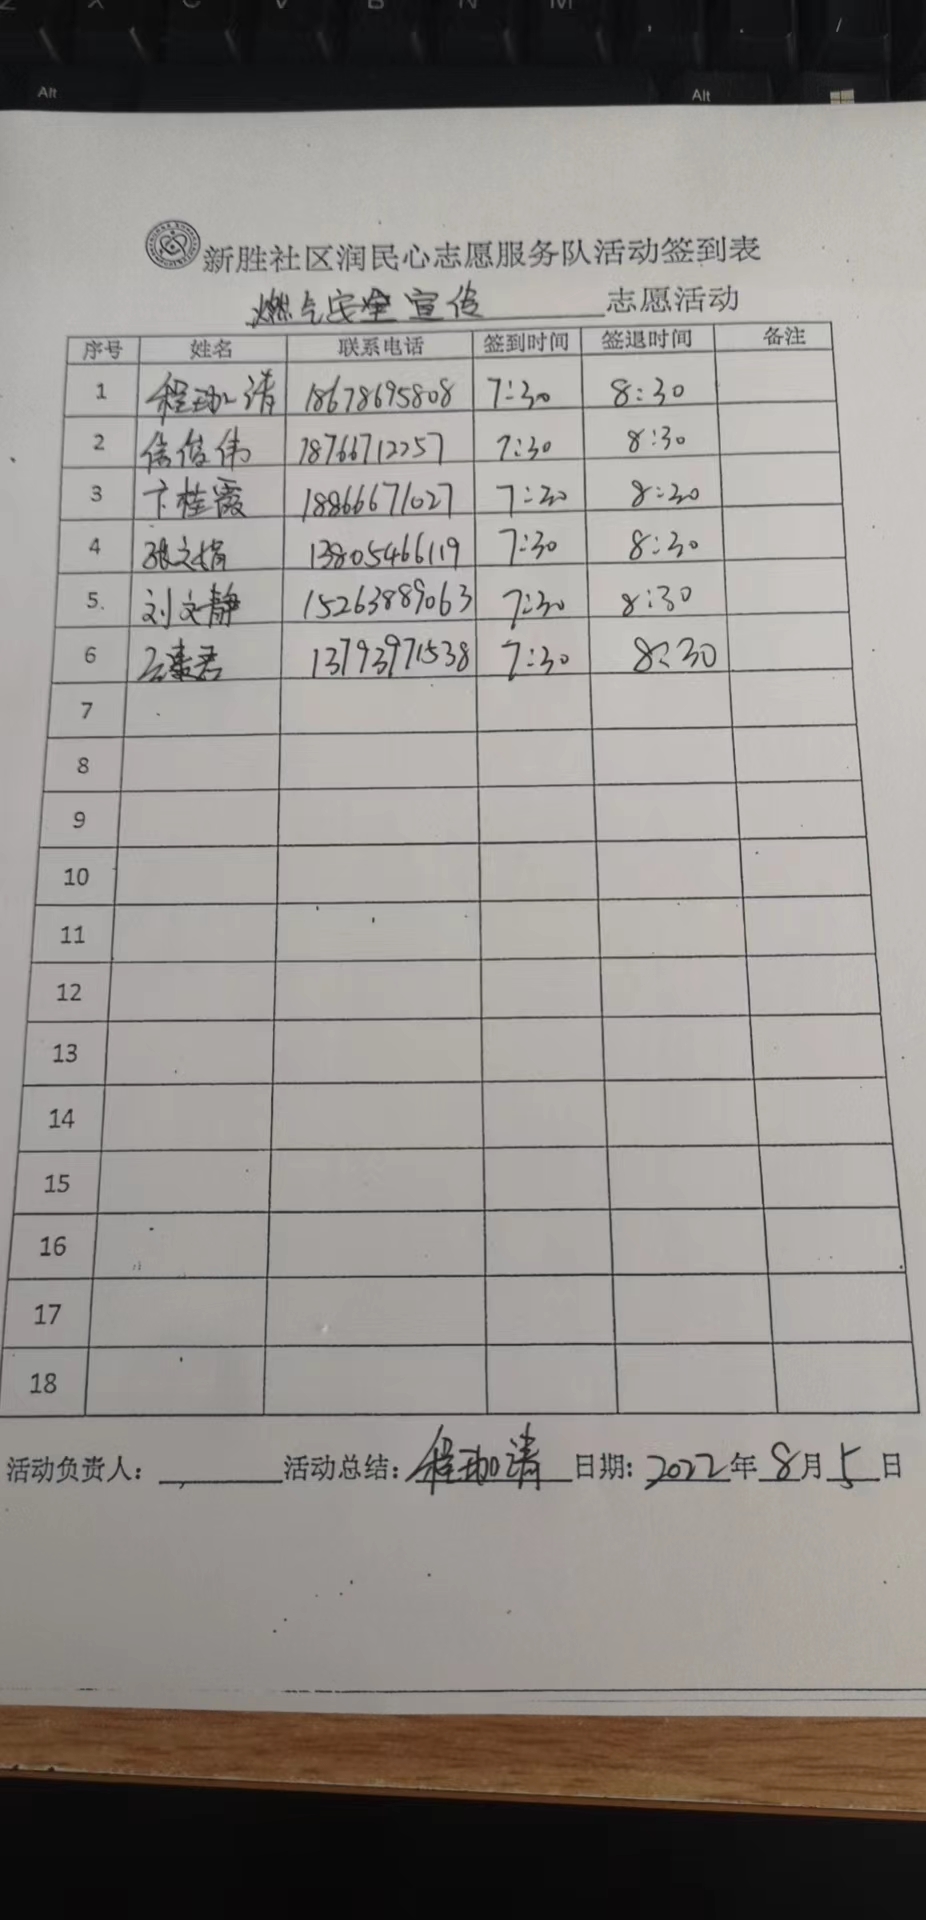 Z X C V B N M , . /
Alt Alt
新胜社区润民心志愿服务队活动签到表
燃气安全宣传 志愿活动
序号 姓名 联系电话 签到时间 签退时间 备注
1 程珈清 18678695808 7:30 8:30
2 信俊伟 18766712257 7:30 8:30
3 卞桂霞 18866671027 7:30 8:30
4 张文娟 13805466119 7:30 8:30
5 刘文静 15263889063 7:30 8:30
6 13793971538 7:30 8:30
7
8
9
10
11
12
13
14
15
16
17
18
活动负责人: 活动总结: 程珈清 日期: 2022年8月5日